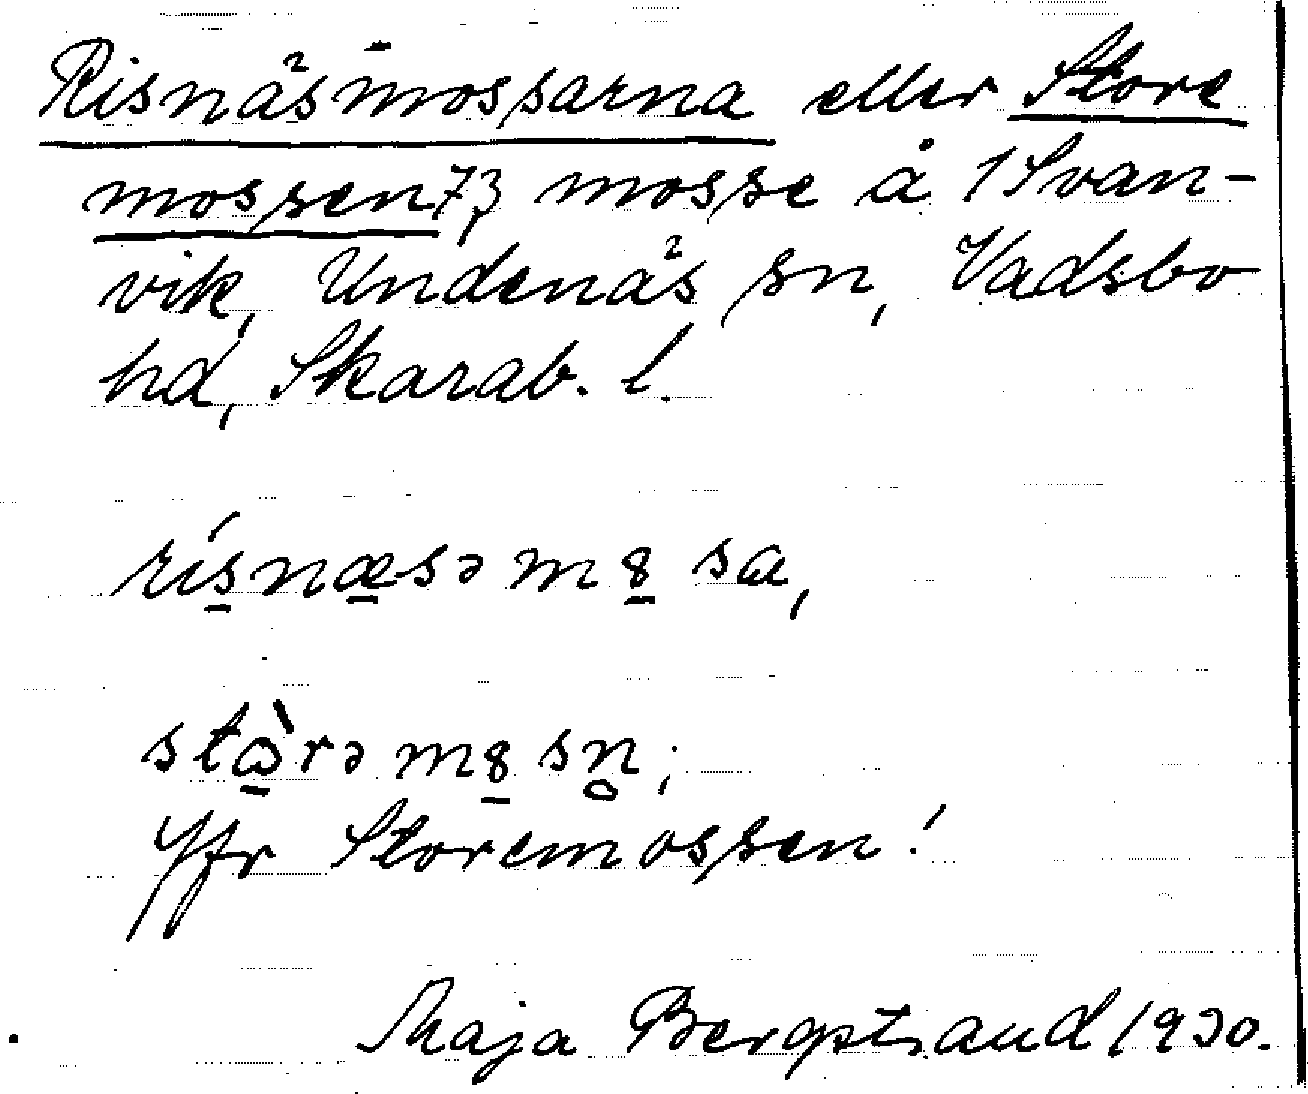 Risnäsmossarna eller Store
mossen 73 mosse å 1 Svan-
vik, Undenäs sn, Vadsbo
hd, Skarab. l.
rísnæsə m8 sa,
stὼrə m8 sn̥;
Jfr Storemossen!
Maja Bergstrand 1930.